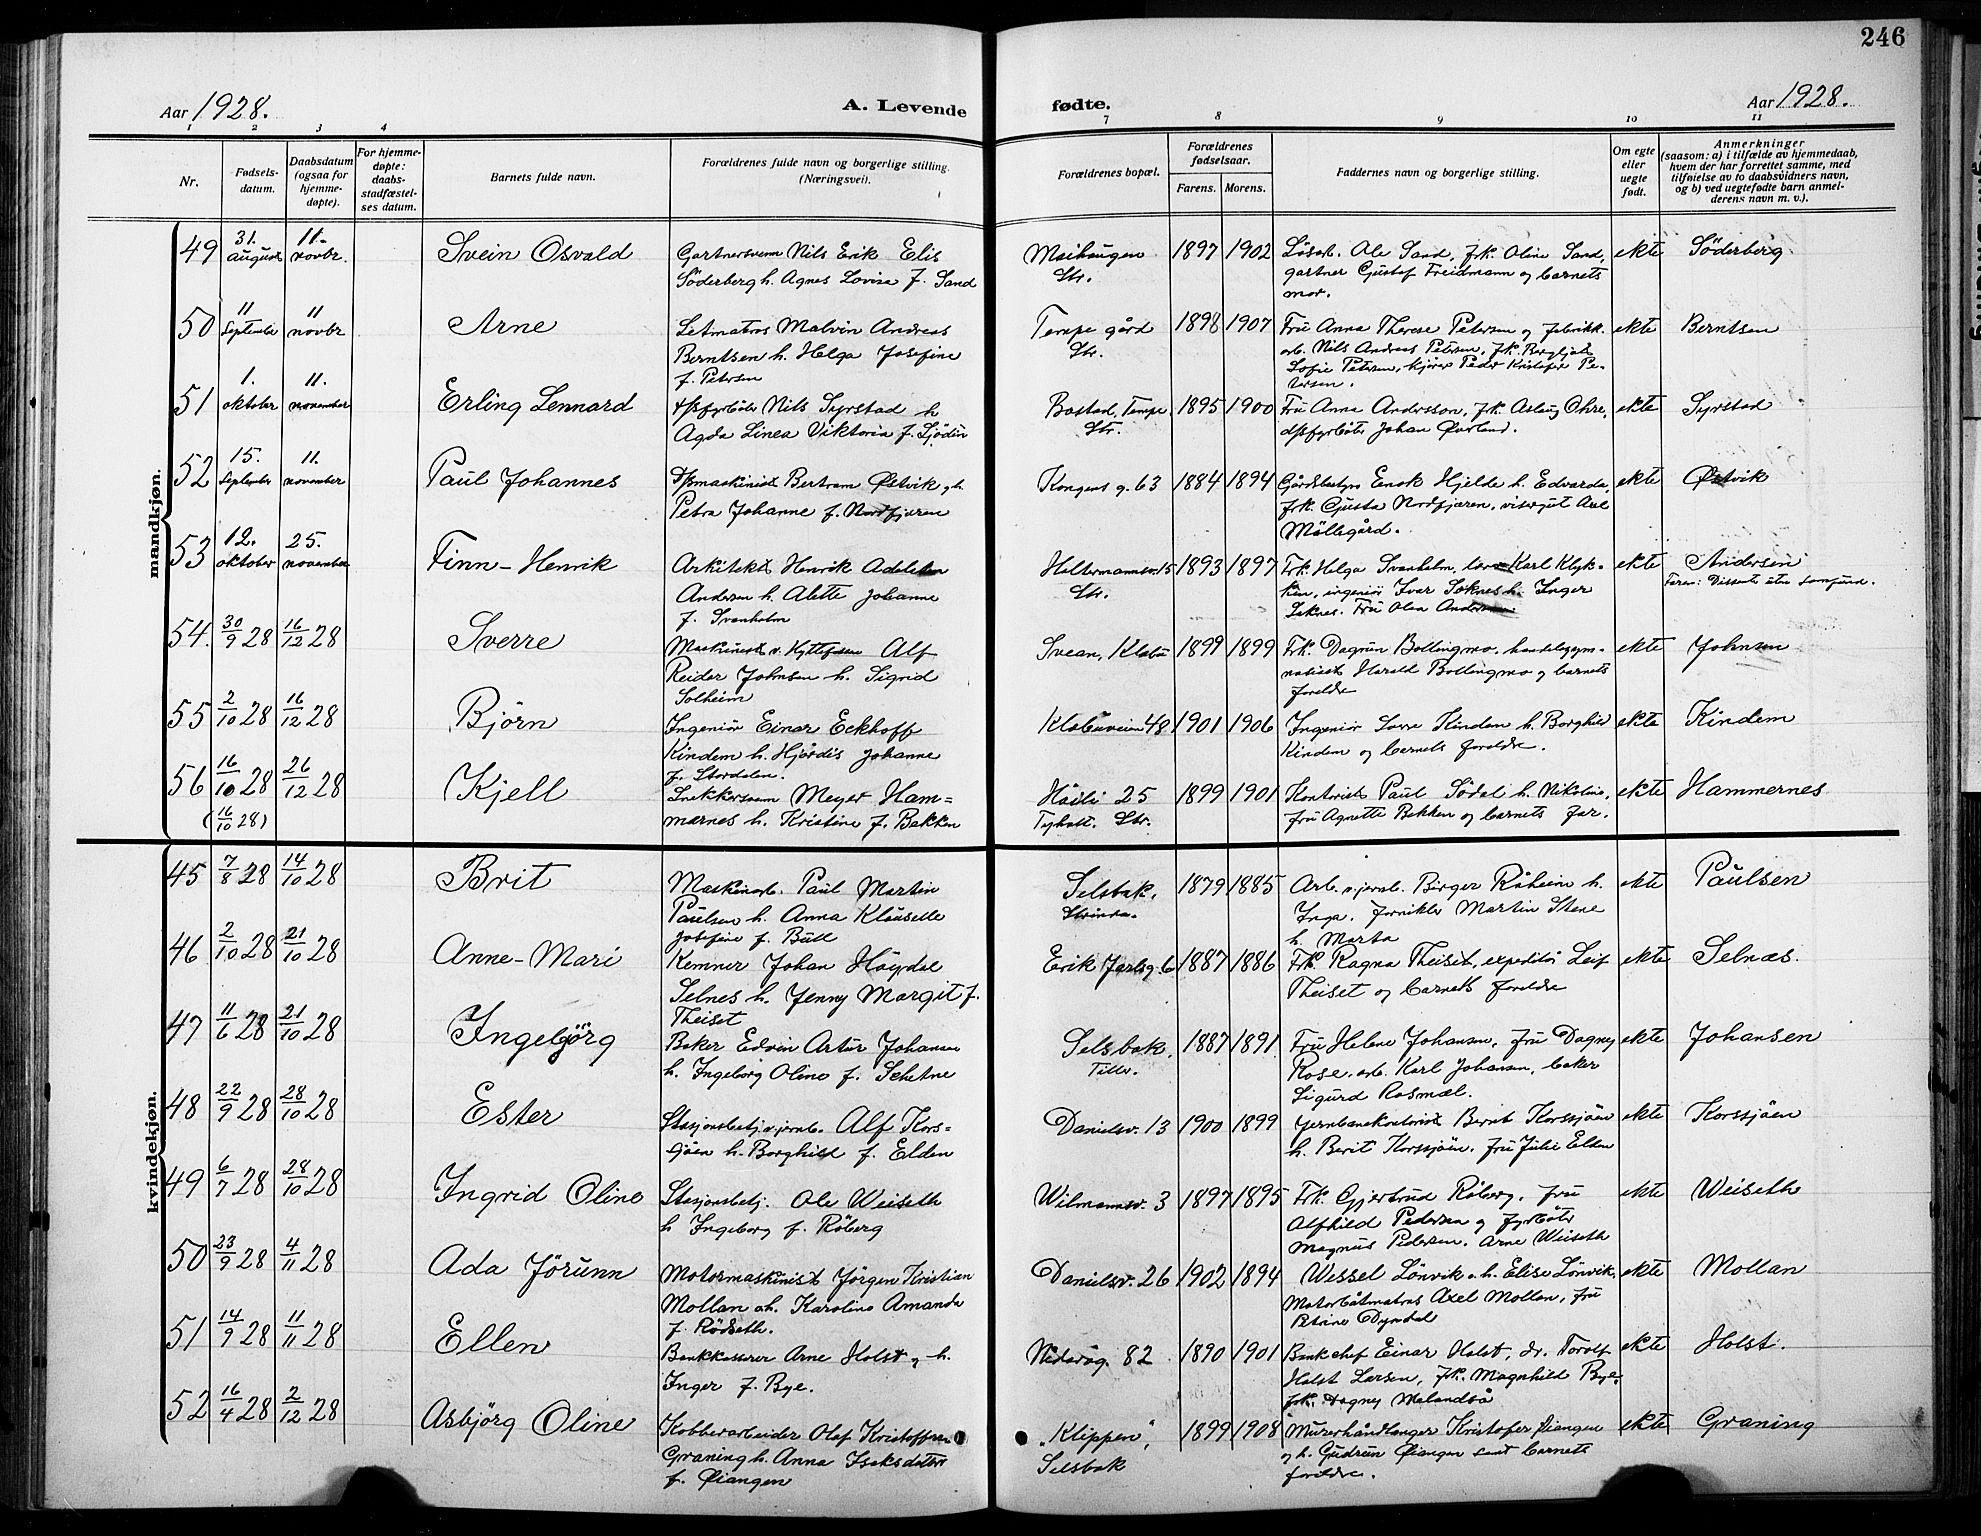 246
Aar 1928.
A. Levende
fødte.
Aar 1928.
1 2 3 4 7 8 9 10 11
Nr.
Fødsels-
datum.
Daabsdatum
(ogsaa for
hjemme-
døpte).
For hjemme-
døpte:
daabs-
stadfæstel-
ses datum.
Barnets fulde navn.
Forældrenes fulde navn og borgerlige stilling.
(Næringsvei).
Forældrenes bopæl.
Forældrenes
fødselsaar.
Farens. Morens.
Faddernes navn og borgerlige stilling.
Om egte
eller
uegte
født.
Anmerkninger
(saasom: a) i tilfælde av hjemmedaab,
hvem der har forrettet samme, med
tilføielse av to daabsvidners navn,
og b) ved uegtefødte barn anmel-
derens navn m. v.).
mandkjøn.
49 31. august 11. novbr. Svein Osvald
Gartnersvenn Nils Erik Elis
Söderberg h. Agnes Lovise f. Sand
Maihaugen
Str.
1897 1902
Løsarb. Ole Sand, frk. Oline Sand,
gartner Gustof Freidmann og barnets
mor.
ekte Söderberg
50 11 September 11 novbr Arne
Letmatros Malvin Andreas
Berntsen h. Helga Josefine
f. Petersen
Tempe gård
Str.
1898 1907
Fru Anna Therese Petersen og fabrikk.
arb. Nils Andreas Petersen, frk. Bergljot
Sofie Petersen, kjører Peder Kristofer Pe-
tersen.
ekte Berntsen
51 1. oktober 11. november Erling Lennard
d/sfyrbøter Nils Syrstad h
Agda Linea Viktoria f. Sjödin
Bostad, Tempe
Str.
1895 1900
Fru Anna Andersson, frk. Aslaug Ohre,
d/sfyrbøter Johan Øverland.
ekte Syrstad
52 15. September 11. november Paul Johannes
D/smaskinist Bertram Østvik og h.
Petra Johanne f. Nordfjæren
Kongens g. 63
1884 1894
Gårdbestyr Enok Hjelde h. Edvarda,
frk. Gusta Nordfjæren, visergut Axel
Möllegård.
ekte Østvik
53 12. oktober 25. november Finn-Henrik
Arkitekt Henrik Adelsten
Andersen h. Alette Johanne
f. Svanholm
Holtermannsv. 15
Str.
1893 1897
Frk. Helga Svanholm, Karl Klyk-
ken, ingeniør Ivar Soknes h. Inger
Soknes. Fru Olea Andersen.
ekte Andersen
Faren: Dissent. uten samfund.
54. 30/9 28 16/12 28 Sverre
Maskinist v. Alf
Reidar Johnsen h. Sigrid
Solheim
Svean, Klæbu
1899 1899
Frk. Dagrun Bollingmo, handelsgym-
nasiast Harald Bollingmo og barnets
foreldre
ekte Johnsen
55 2/10 28 16/12 28 Bjørn
Ingeniør Einar Eckhoff
Kindem h. Hjørdis Johanne
f. Stordalen.
Klæbuveien 48
1901 1906
Ingeniør Kindem h. Borghild
Kindem og barnets foreldre.
ekte Kindem
56 16/10 28 26/12 28 Kjell
(16/10 28)
Snekkersvenn Meyer Ham=
mernes h. Kristine f. Bekken
Høili 25
Tyholt. Str.
1899 1901
Kontorist Paul Sødal h. Nikoline,
fru Agnette Bekken og barnets far.
ekte Hammernes
kvindekjøn.
45 7/8 28 14/10 28 Brit
Maskinarb. Paul Martin
Paulsen h. Anna Klausette
Josefine f. Bull
Selsbak,
Strinda.
1879 1885
Arb. v. jernb. Birger Røheim h.
Inga. fornikler Martin Stene
h. Marta
ekte Paulsen
46 2/10 28 21/10 28 Anne-Mari
Kemner Johan Høydal
Selnes h. Jenny Margit f.
Theiset
Erik Jarlsg. 6
1887 1886
Frk. Ragna Theiset, expeditør Leif
Theiset og barnets foreldre
ekte Selnæs.
47 11/6 28 21/10 28 Ingebjörg
Baker Edvin Artur Johansen
h. Ingeborg Oline f. Schetne
Selsbak.
Tiller.
1887 1891
Fru Helene Johansen, fru Dagny
Rose, arb. Karl Johansen, baker
Sigurd Rosmæl.
ekte Johansen
48 22/9 28 28/10 28 Ester
Stasjonsbetj. v. jernb. Alf Kors-
sjöen h. Borghild f. Elden
Danielsv. 13
1900 1899
Jernbanekontorist Bernt Korssjöen
h. Berit Korssjöen. fru Julie Elden
ekte Korssjöen
49 6/7 28 28/10 28 Ingrid Oline
Stasjonsbetj. Ole Weiseth
h Ingeborg f. Röberg
Wilmannsv. 3
1897 1895
Frk. Gjertrud Röberg, fru
Alfhild Pedersen og fyrböter
Magnus Pedersen. Arne Weiseth
ekte Weiseth
50 23/9 28 4/11 28 Ada Jörunn
Motormaskinist Jörgen Kristian
Mollan oh. Karoline Amanda
f. Rødseth.
Danielsv. 26
1902 1894
Wessel Lönvik o.h. Elise Lönvik,
Motorbåtmatros Axel Mollan, fru
Petrine Dyndal
ekte Mollan
51 14/9 28 11/11 28 Ellen
Bankkasserer Arne Holst og h.
Inger f. Bye.
Nidarøg. 82
1890 1901
Bankchef Einar Holst, dr. Torolf
Holst Larsen, frk. Magnhild Bye,
frk. Dagny Melandsø
ekte Holst.
52 16/4 28 2/12 28 Asbjörg Oline
Kobberarbeider Olaf Kristoffersen
Graning h. Anna Isaksdatter
f. Øiangen
"Klippen",
Selsbak
1899 1908
Murerhåndlanger Kristofer Øiangen
og h. Gudrun Øiangen samt barnets
foreldre.
ekte Graning